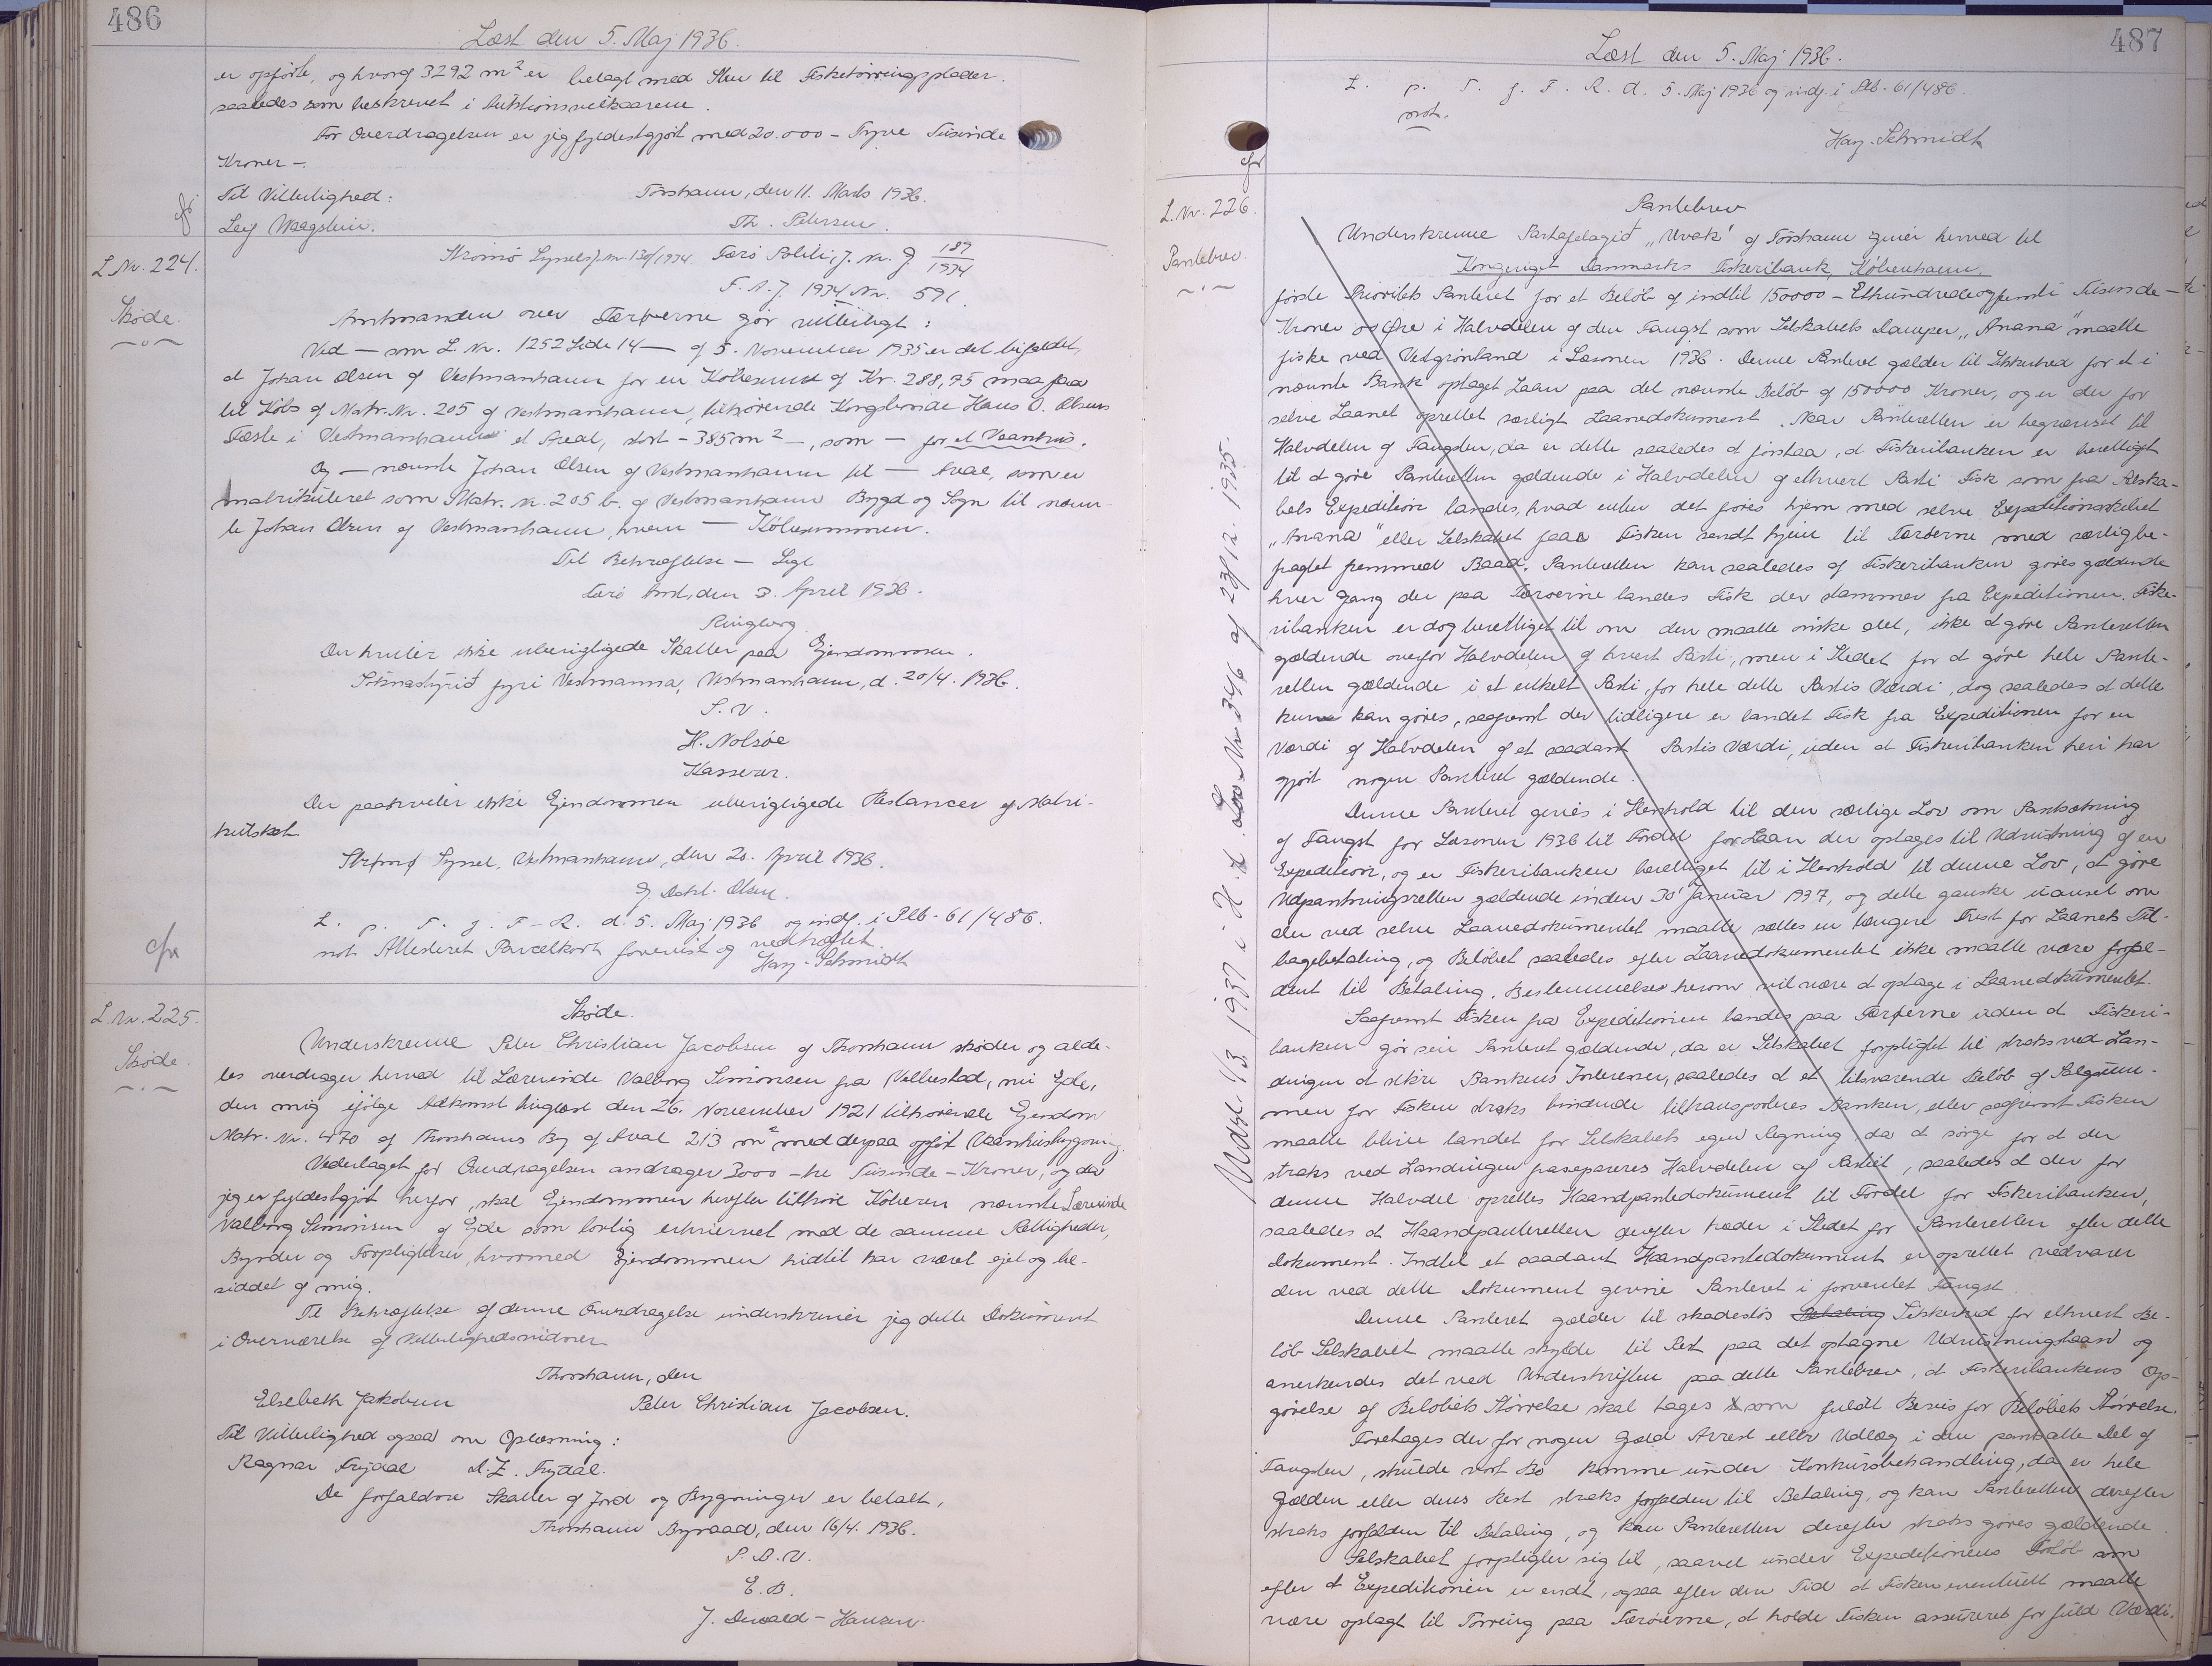 486
Læst den 5. Maj 1936.
er opførte, og hvoraf 3292 m² er belagt med Sten til Fisketørringsplader.
saaledes som beskrevet i Auktionsvilkaarene.
For Overdragelsen er jeg fyldestgjort med 20.000 – Tyve Tusinde
Kroner –.
Til Vitterlighed: Torshavn, den 11. Marts 1936.
Leif Waagstein. Th. Petersen.
cfr.
L Nr. 224.
Skøde.
Strømø Syssels J. Nr. 130/1934 Færø Politi, J. Nr. J 187/1934
F. A. J. 1934 Nr. 591.
Amtmanden over Færøerne gør vitterligt:
Ved — som L. Nr. 1252 Side 14 — af 5. November 1935 er det bifaldet,
at Johan Olsen af Vestmanhavn for en Købesum af Kr. 288,75 maa faa
til Købs af Matr. Nr. 205 af Vestmanhavn, tilhørende Kongsbonde Hans O. Olsens
Fæste i Vestmanhavn et Areal, stort – 385 m² –, som — for et Vaanhus.
Og — nævnte Johan Olsen af Vestmanhavn til — Areal, som er
matrikuleret som Matr. Nr. 205 b. af Vestmanhavn Bygd og Sogn til nævn-
te Johan Olsen af Vestmanhavn, hvem — Købesummen.
Til Bekræftelse — Segl
Færø Amt, den 3. April 1936.
Ringberg
Der hviler ikke uberigtigede Skatter paa Ejendommen.
Sóknarstýrið fyri Vestmanna, Vestmanhavn, d. 20/4. 1936.
S. V.
H. Nolsøe
Kasserer.
Der paahviler ikke Ejendommen uberigtigede Restancer af Matri-
kulskat.
Strømø Syssel, Vestmanhavn, den 20. April 1936.
J. Dahl-Olsen.
L. p. T. f. F. R. d. 5. Maj 1936 og indf. i Plb. 61/486.
not. Attesteret Parcelkort forevist og vedhæftet.
Hay-Schmidt
cfr.
L. Nr. 225.
Skøde.
Skøde.
Underskrevne Peter Christian Jacobsen af Thorshavn skøder og alde-
les overdrager herved til Lærerinde Valborg Simonsen fra Velbestad, nu Ejde,
den mig ifølge Adkomst tinglæst den 26. November 1921 tilhørende Ejendom
Matr. Nr. 470 af Thorshavns By af Areal 213 m² med derpaa opført Vaanhusbygning.
Vederlaget for Overdragelsen andrager 3000 – tre Tusinde – Kroner, og da
jeg er fyldestgjort herfor, skal Ejendommen herefter tilhøre Køberen nævnte Lærerinde
Valborg Simonsen af Ejde som lovlig erhvervet med de samme Rettigheder,
Byrder og Forpligtelser, hvormed Ejendommen hidtil har været ejet og be-
siddet af mig.
Til Bekræftelse af denne Overdragelse underskriver jeg dette Dokument
i Overværelse af Vitterlighedsvidner
Thorshavn, den
Elsebeth Jakobsen Peter Christian Jacobsen.
Til Vitterlighed ogsaa om Oplæsning:
Ragnar Frydal D. Z. Frydal.
De forfaldne Skatter af Jord og Bygninger er betalt,
Thorshavn Byraad, den 16/4. 1936.
P. B. V.
E. B.
J. Dewald-Hansen.
487
Læst den 5. Maj 1936.
L. p. T. f. F. R. d. 5. Maj 1936 og indf. i Plb. 61/486.
not.
Hay-Schmidt
cfr
L. Nr. 226.
Pantebrev.
Udsl. 1/3 1937 i H. t. Lov Nr 346 af 23/12. 1935.
Pantebrev
Underskrevne Partafelagið „Uvak" af Torshavn giver herved til
Kongeriget Danmarks Fiskeribank, København,
første Prioritets Panteret for et Beløb af indtil 150000 – Ethundredeogfemti Tusinde –
Kroner 00 Øre i Halvdelen af den Fangst som Selskabets Damper „Anana" maatte
fiske ved Vestgrønland i Sæsonen 1936. Denne Panteret gælder til Sikkerhed for et i
nævnte Bank optaget Laan paa det nævnte Beløb af 150000 Kroner, og er der for
selve Laanet oprettet særligt Laanedokument. Naar Panteretten er begrænset til
Halvdelen af Fangsten, da er dette saaledes at forstaa, at Fiskeribanken er berettiget
til at gøre Panteretten gældende i Halvdelen af ethvert Parti Fisk som fra Selska-
bets Expedition landes, hvad enten det føres hjem med selve Expeditionsskibet
„Anana" eller Selskabet faar Fisken sendt hjem til Færøerne med særlig be-
fragtet fremmed Baad. Panteretten kan saaledes af Fiskeribanken gøres gældende
hver Gang der paa Færøerne landes Fisk der stammer fra Expeditionen. Fiske-
ribanken er dog berettiget til om den maatte ønske det, ikke at gøre Panteretten
gældende overfor Halvdelen af hvert Parti, men i Stedet for at gøre hele Pante-
retten gældende i et enkelt Parti, for hele dette Partis Værdi, dog saaledes at dette
kun kan gøres, saafremt der tidligere er landet Fisk fra Expeditionen for en
Værdi af Halvdelen af et saadant Partis Værdi, uden at Fiskeribanken heri har
gjort nogen Panteret gældende.
Denne Panteret gives i Henhold til den særlige Lov om Pantsætning
af Fangst for Sæsonen 1936 til Fordel for Laan der optages til Udrustning af en
Expedition, og er Fiskeribanken berettiget til i Henhold til denne Lov, at gøre
Udpantningsretten gældende inden 30' Januar 1937, og dette ganske uanset om
der ved selve Laanedokumentet maatte sættes en længere Frist for Laanets Til-
bagebetaling, og Beløbet saaledes efter Laanedokumentet ikke maatte være forfal-
dent til Betaling. Bestemmelser herom vil være at optage i Laanedokumentet.
Saafremt Fisken fra Expeditionen landes paa Færøerne uden at Fiskeri-
banken gør sin Panteret gældende, da er Selskabet forpligtet til straks ved Lan-
dingen at sikre Bankens Interesser, saaledes at et tilsvarende Beløb af Salgssum-
men for Fisken straks bindende tiltransporteres Banken, eller saafremt Fisken
maatte blive landet for Selskabets egen Regning, da at sørge for at der
straks ved Landingen fraseparares Halvdelen af Partiet, saaledes at der for
denne Halvdel oprettes Haandpantedokument til Fordel for Fiskeribanken,
saaledes at Haandpanteretten derefter træder i Stedet for Panteretten efter dette
Dokument. Indtil et saadant Haandpantedokument er oprettet vedvarer
den ved dette Dokument givne Panteret i forventet Fangst.
Denne Panteret gælder til skadesløs Betaling Sikkerhed for ethvert Be-
løb Selskabet maatte skylde til Rest paa det optagne Udrustningslaan og
anerkendes det ved Underskriften paa dette Pantebrev, at Fiskeribankens Op-
gørelse af Beløbets Størrelse skal tages som fuldt Bevis for Beløbets Størrelse.
Foretages der for nogen Gæld Arrest eller Udlæg i den pantsatte Del af
Fangsten, skulde vort Bo komme under Konkursbehandling, da er hele
Gælden eller dens Rest straks forfalden til Betaling, og kan Panteretten derefter
straks forfalden til Betaling, og kan Panteretten derefter straks gøres gældende.
Selskabet forpligter sig til, saavel under Expeditionens Forløb som
efter at Expeditionen er endt, ogsaa efter den Tid at Fisken eventuelt maatte
være oplagt til Tørring paa Færøerne, at holde Fisken assureret for fuld Værdi.